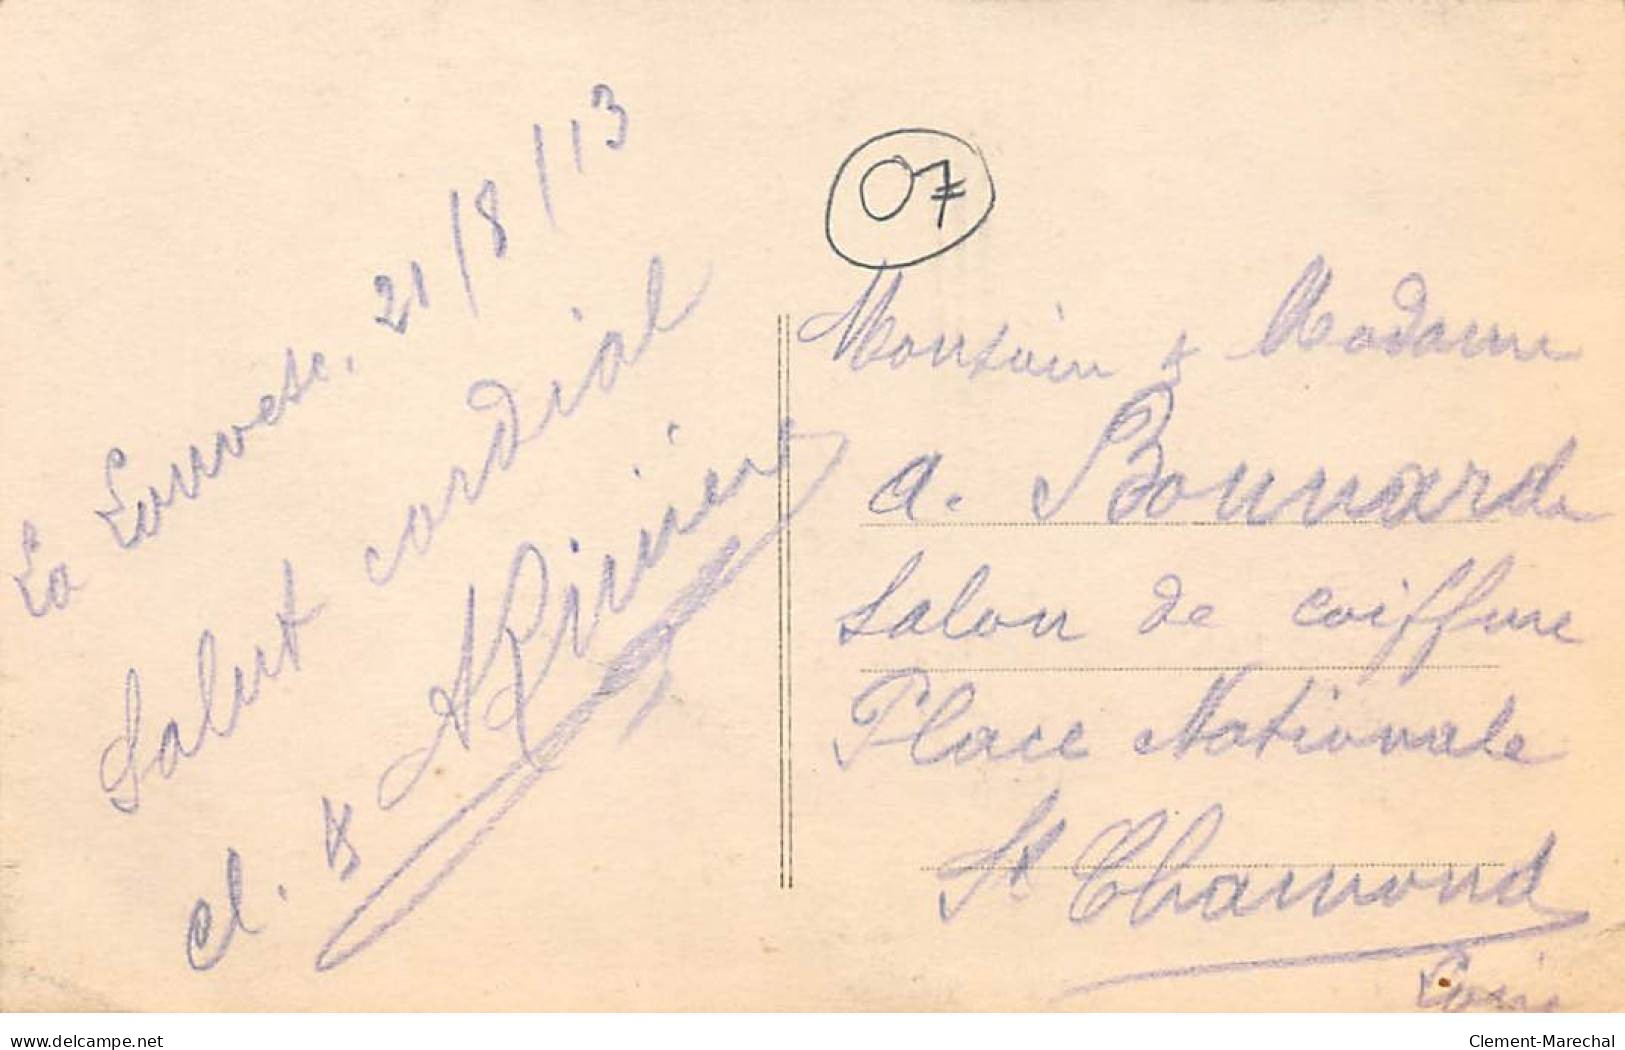 La Louvesc, 21/8/13
Salut cordial
cl. & A Rivier
07
Monsieur & Madame
A. Bonnard
Salon de coiffure
Place Nationale
St Chamond
Loire
www.delcampe.net
Clement-Marechal